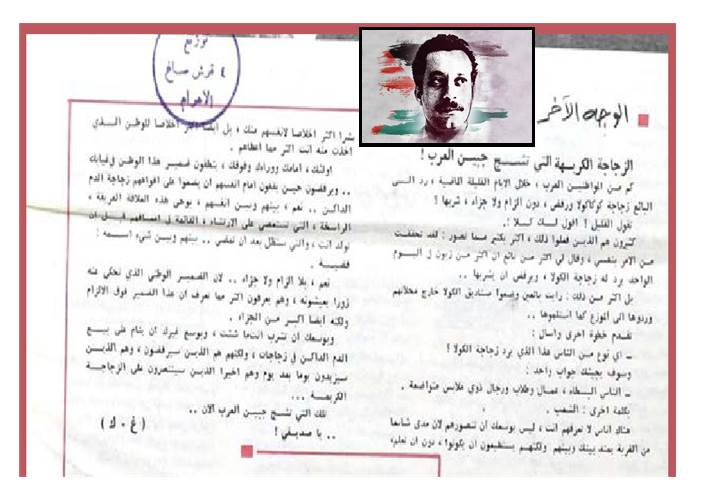 توزيع
٤ قرش صاغ
الاهرام
الوجه الآخر
الزجاجة الكريهة التي تشج جبين العرب !
كم من المواطنين العرب ، خلال الايام القليلة الماضية ، رد الى
البائع زجاجة كوكاكولا ورفض ، دون الزام ولا جزاء ، شربها !
تقول القليل ! اقول لك كلا :
كثيرون هم الذين فعلوا ذلك ، اكثر بكثير مما نصور : لقد تحققت
من الامر بنفسي ، وقال لي اكثر من بائع ان اكثر من زبون في اليوم
الواحد يرد له زجاجة الكولا ، ويرفض ان يشربها ..
بل اكثر من ذلك : رايت بائعين وضعوا صناديق الكولا خارج محلاتهم
وردوها الى الموزع كما استلموها ..
تقدم خطوة اخرى واسال :
ـ اي نوع من الناس هذا الذي يرد زجاجة الكولا !
وسوف يجيئك جواب واحد :
ـ الناس البسطاء ، عمال وطلاب ورجال ذوي ملابس متواضعة .
بكلمة اخرى : الشعب .
هناك اناس لا تعرفهم انت ، ليس بوسعك ان تتصورهم لان مدى شاسعا
من الغربة يمتد بينك وبينهم ولكنهم يستطيعون ان يكونوا ، دون ان تعلم،
بشرا اكثر اخلاصا لانفسهم منك ، بل ايضا اكثر اخلاصا للوطن الذي
اخذت منه انت اكثر مما اعطاهم .
اولئك ، امامك ووراءك وفوقك ، ينظفون ضمير هذا الوطن في غيابك
.. ويرفضون حين يقفون امام انفسهم ان يضعوا على افواههم زجاجة الدم
الداكن .. نعم ، بينهم وبين انفسهم ، بوحي هذه العلاقة العريقة ،
الراسخة ، التي تستعصي على الارتشاء ، القائمة في اعماقهم قبل ان
تولد انت ، والتي ستظل بعد ان تمضي .. بينهم وبين شيء اسمه :
قضية .
نعم ، بلا الزام ولا جزاء .. لان الضمير الوطني الذي نحكي عنه
زورا يعيشونه ، وهم يعرفون اكثر مما نعرف ان هذا الضمير فوق الالزام
ولكنه ايضا اكبر من الجزاء .
وبوسعك ان تشرب انت ما شئت ، وبوسع غيرك ان ينام على بيع
الدم الداكن في زجاجات ، ولكنهم هم الذين سيرفضون ، وهم الذين
سيزيدون يوما بعد يوم وهم اخيرا الذين سينتصرون على الزجاجة
الكريهة ...
تلك التي تشج جبين العرب الان ..
.. يا صديقي !
( غ . ك )